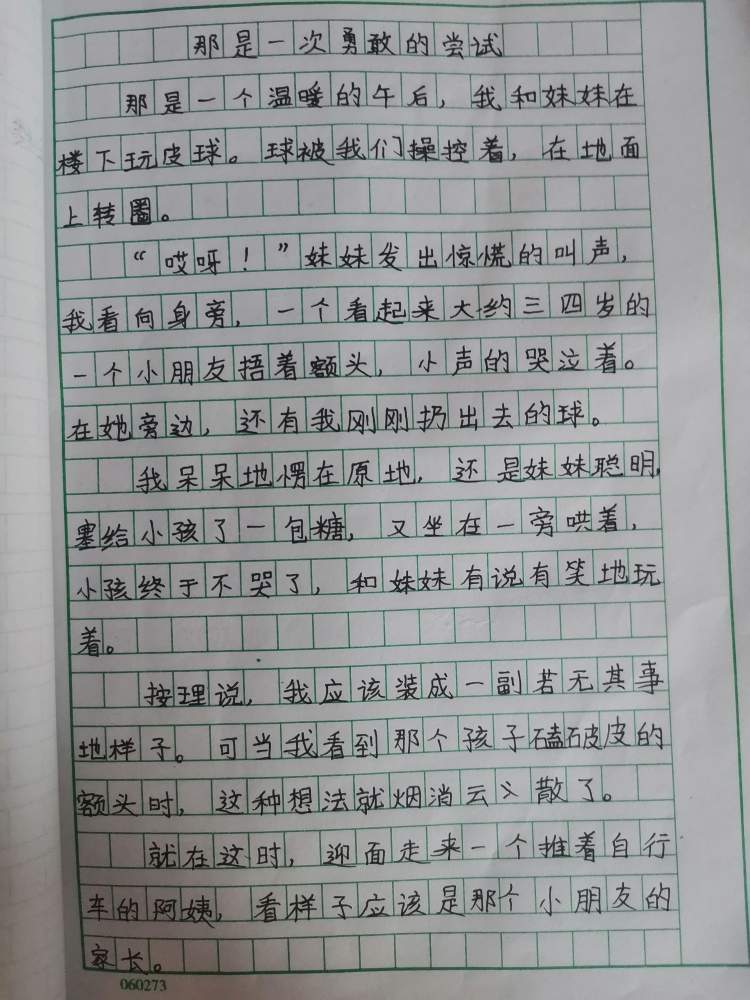 那是一次勇敢的尝试
那是一个温暖的午后，我和妹妹在
楼下玩皮球。球被我们操控着，在地面
上转圈。
“哎呀！”妹妹发出惊慌的叫声，
我看向身旁，一个看起来大约三四岁的
一个小朋友捂着额头，小声的哭泣着。
在她旁边，还有我刚刚扔出去的球。
我呆呆地愣在原地，还是妹妹聪明，
塞给小孩了一包糖，又坐在一旁哄着，
小孩终于不哭了，和妹妹有说有笑地玩
着。
按理说，我应该装成一副若无其事
地样子。可当我看到那个孩子磕破皮的
额头时，这种想法就烟消云散了。
就在这时，迎面走来一个推着自行
车的阿姨，看样子应该是那个小朋友的
家长。
060273